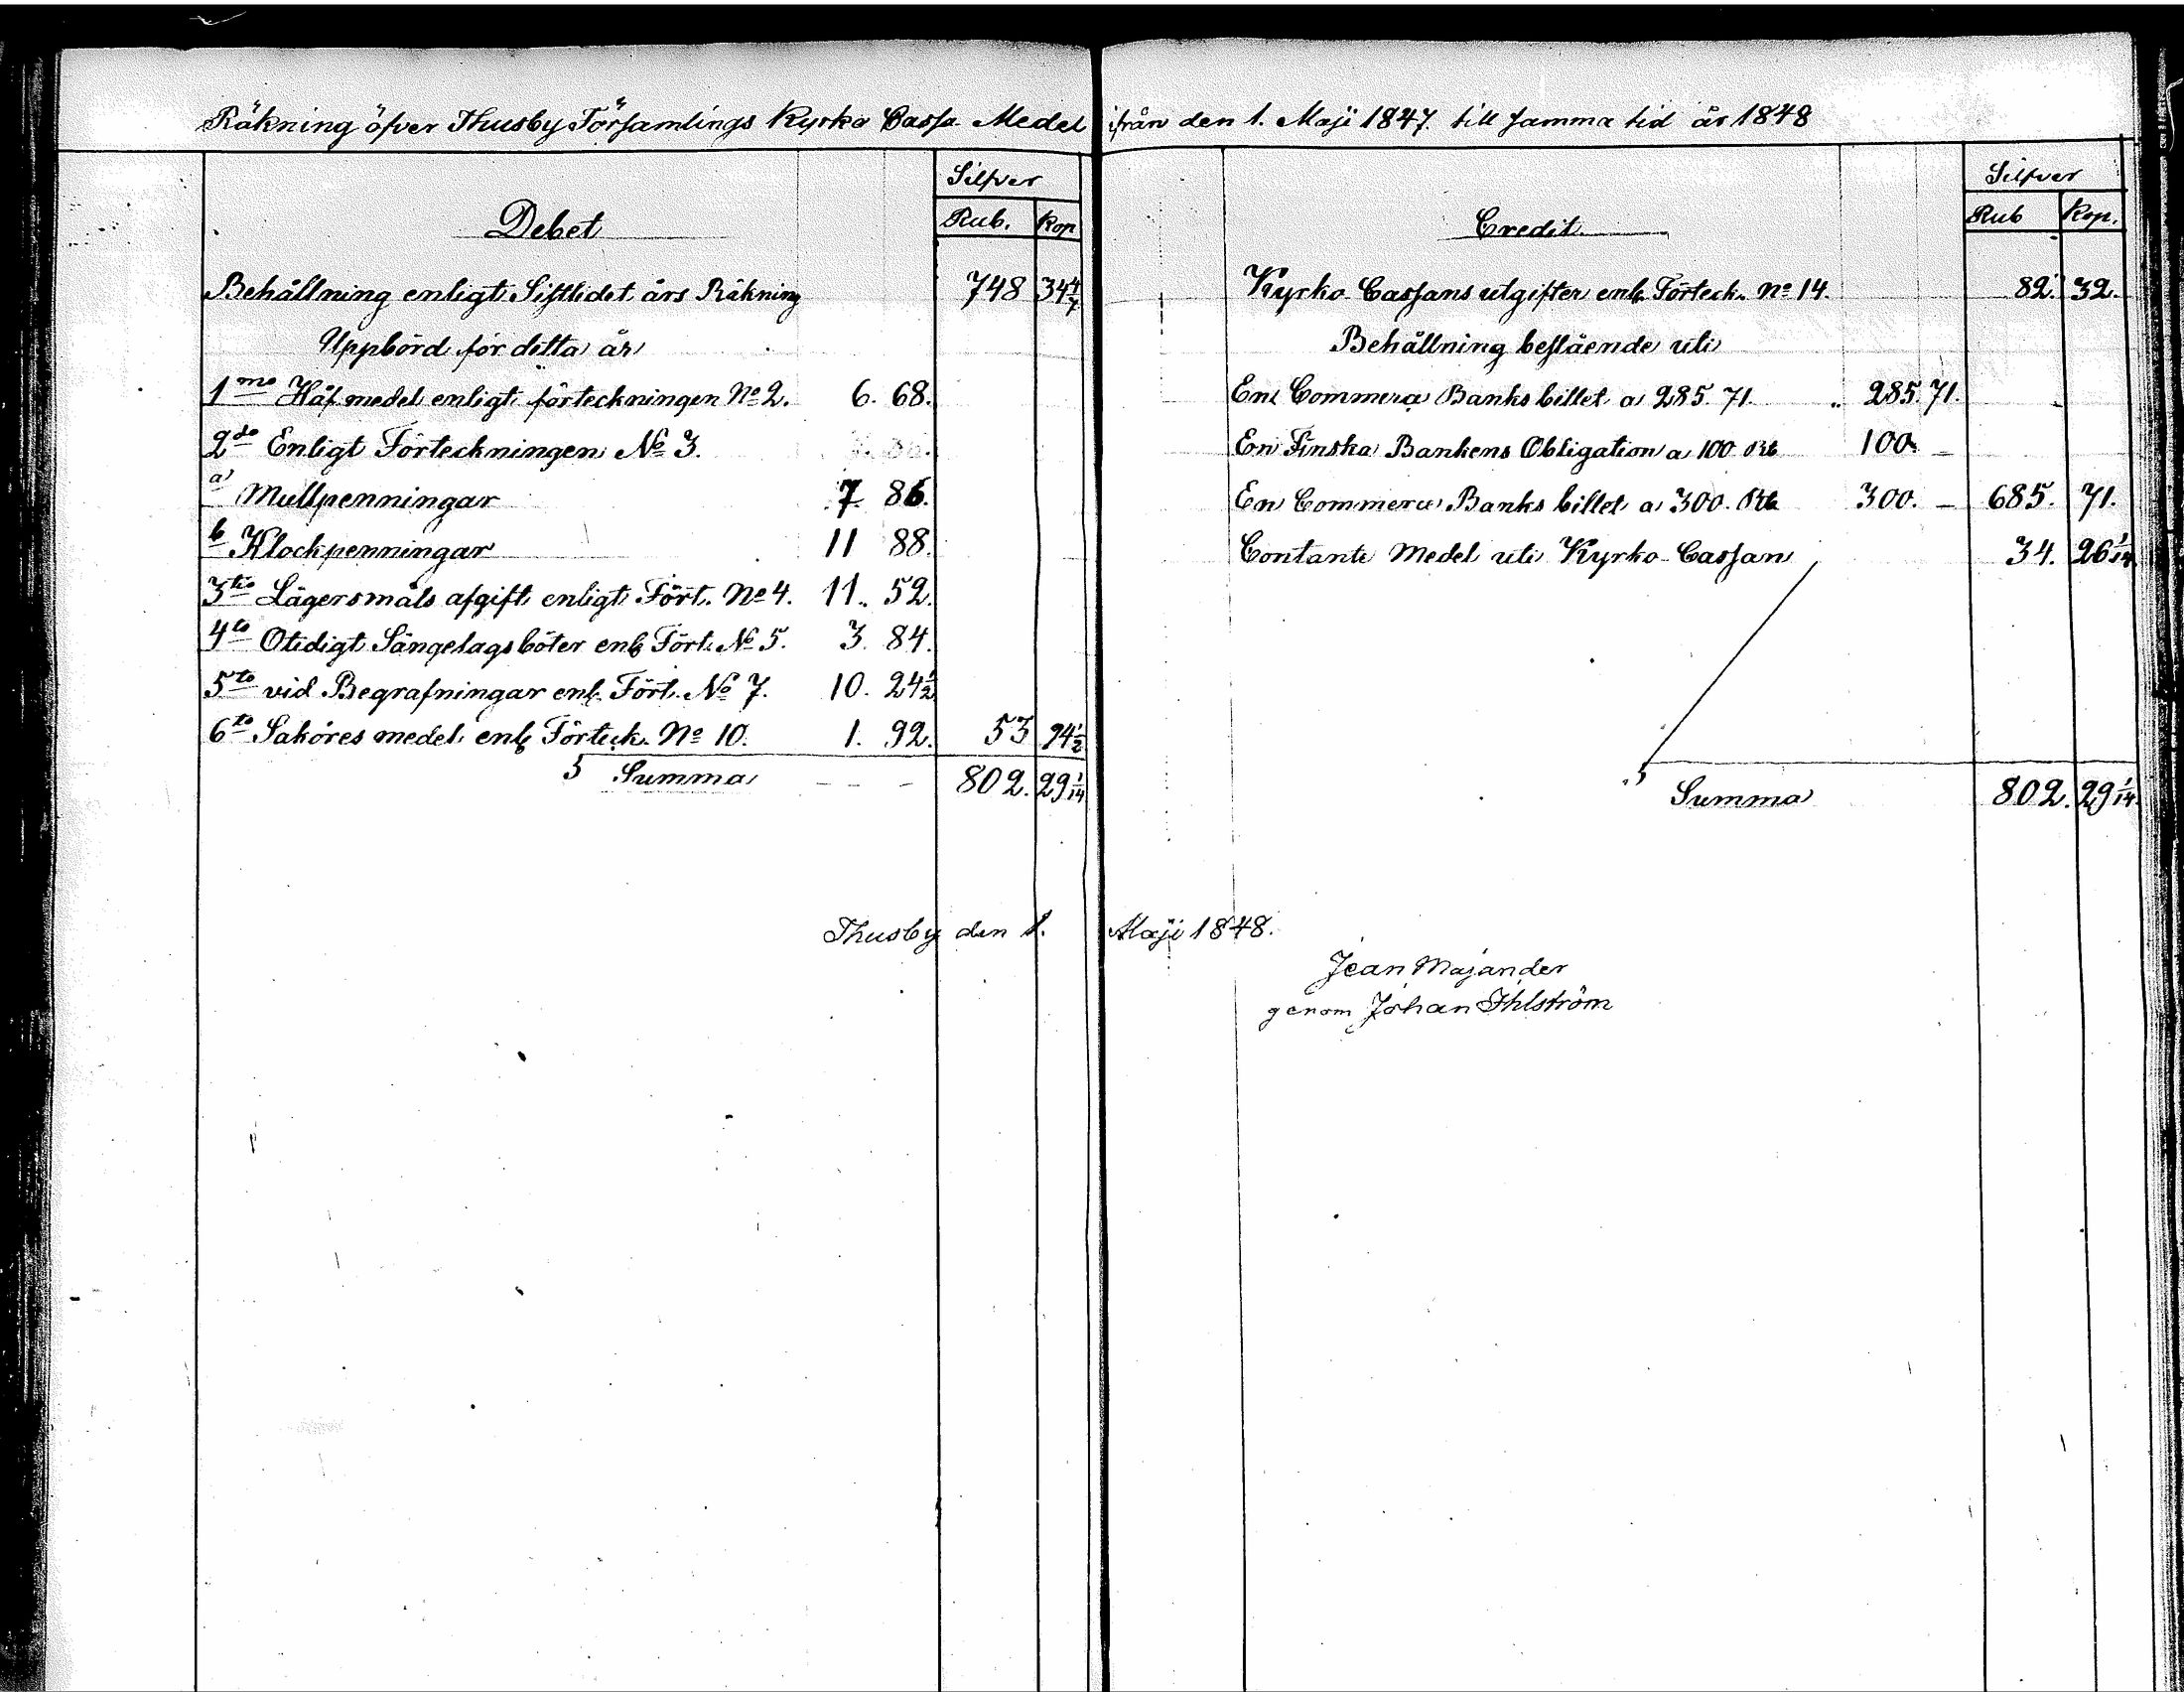 Räkning öfver Thusby Församlings Kyrko Cassa Medel ifrån den 1. Maji 1847. till samma tid år 1848
Silfver
Debet Rub. Kop
Behållning enligt Sistledet års Räkning 748 34 4/7
Uppbörd för detta år
1mo Håf medel enligt förteckningen No 2. 6. 68.
2do Enligt Förteckningen No 3.
a Mullpenningar 7. 86.
b Klockpenningar 11 88.
3tio Lägersmåls afgift enligt Fört. No 4. 11. 52.
4to Otidigt Sängelags böter enl. Fört. No 5. 3. 84.
5to vid Begrafningar enl. Fört. No 7. 10. 24 1/2
6to Saköres medel enl. Förteck. No 10. 1. 92. 53 94 1/2
Summa - - - 802. 29 1/14
Silfver
Credit Rub Kop.
Kyrko Cassans utgifter enl. Förteck. No 14. 82. 32.
Behållning bestående uti
En Commerce Banks billet a 285. 71. 285. 71.
En Finska Bankens Obligation a 100 Rb 100. -
En Commerce Banks billet a 300. Rb 300. - 685. 71.
Contante Medel uti Kyrko-Cassan 34. 26 1/14
Summa 802. 29 1/14.
Thusby den 1. Maji 1848.
Jean Majander
genom Johan Ihlström